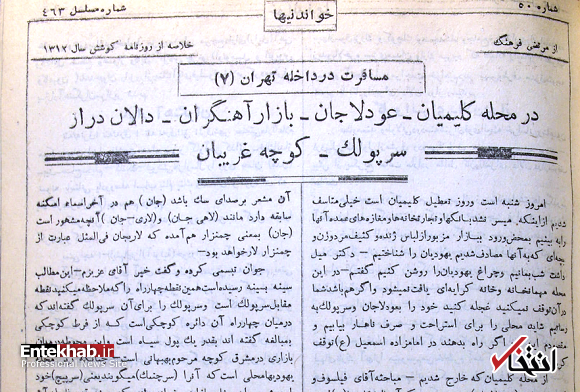 شماره ۵۰
خواندنیها
شماره مسلسل ۴۶۳
از مرتضی فرهنگ
خلاصه از روزنامه کوشش سال ۱۳۱۲
مسافرت در داخله تهران (۷)
در محله کلیمیان - عودلاجان - بازار آهنگران - دالان دراز
سرپولك - کوچه غریبان
امروز شنبه است وروز تعطیل کلیمیان است خیلی متاسف
شدیم از اینکه میسر نشد بانکها و تجارتخانه ها و مغازه های عمده آنها
را به بینیم بمحض ورود ببازار مزبور از لباس ژنده و کثیف مرد و زن و
بچه ای که به آنها مصادف شدیم یهودیان را شناختیم - دکتر میل
داشت شب بمانیم و چراغ یهودیان را روشن کنیم گفتم - در این
محله مهمانخانه و خانه کرایه ای یافت نمیشود و اگر هم باشد شما
در آن توقف نمیکنید عجله کنید خود را بعودلاجان و سرپولك به
رسانیم شاید محلی را برای استراحت و صرف ناهار بیابیم و
اگر راه بدهند در امامزاده اسمعیل (ع) توقف
از محله کلیمیان که خارج شدیم - مباحثه آقای فیلسوف و
آن مشعر برصدای سك باشد (جان) هم در آخر اسماء امکنه
سابقه دارد مانند (لاهی جان) و (لاری - جان) آنچه مشهور است
(جان) بمعنی چمنزار هم آمده که لاریجان فی المثل عبارت از
چمنزار لار خواهد بود -
جوان تبسمی کرده و گفت خیر آقای عزیزم - این مطالب
سینه بسینه رسیده است همین نقطه چهارراه را که ملاحظه میکنید نقطه
مقابل سرپولك است و سرپولك را برای آن سرپولك گفته اند که
درمیان چهار راه آن دائره کوچکی است که از فرط کوچکی
و بمبالغه گفته اند بقدر یك پول سیاه است
بازاری در مشرق کوچه مرحوم بهبهانی است
یهود بها محلی است که آنرا (سرچنبك) میگویند یعنی (سرپیچ) خود
Entekhab.ir
Professional News Site
انتخاب